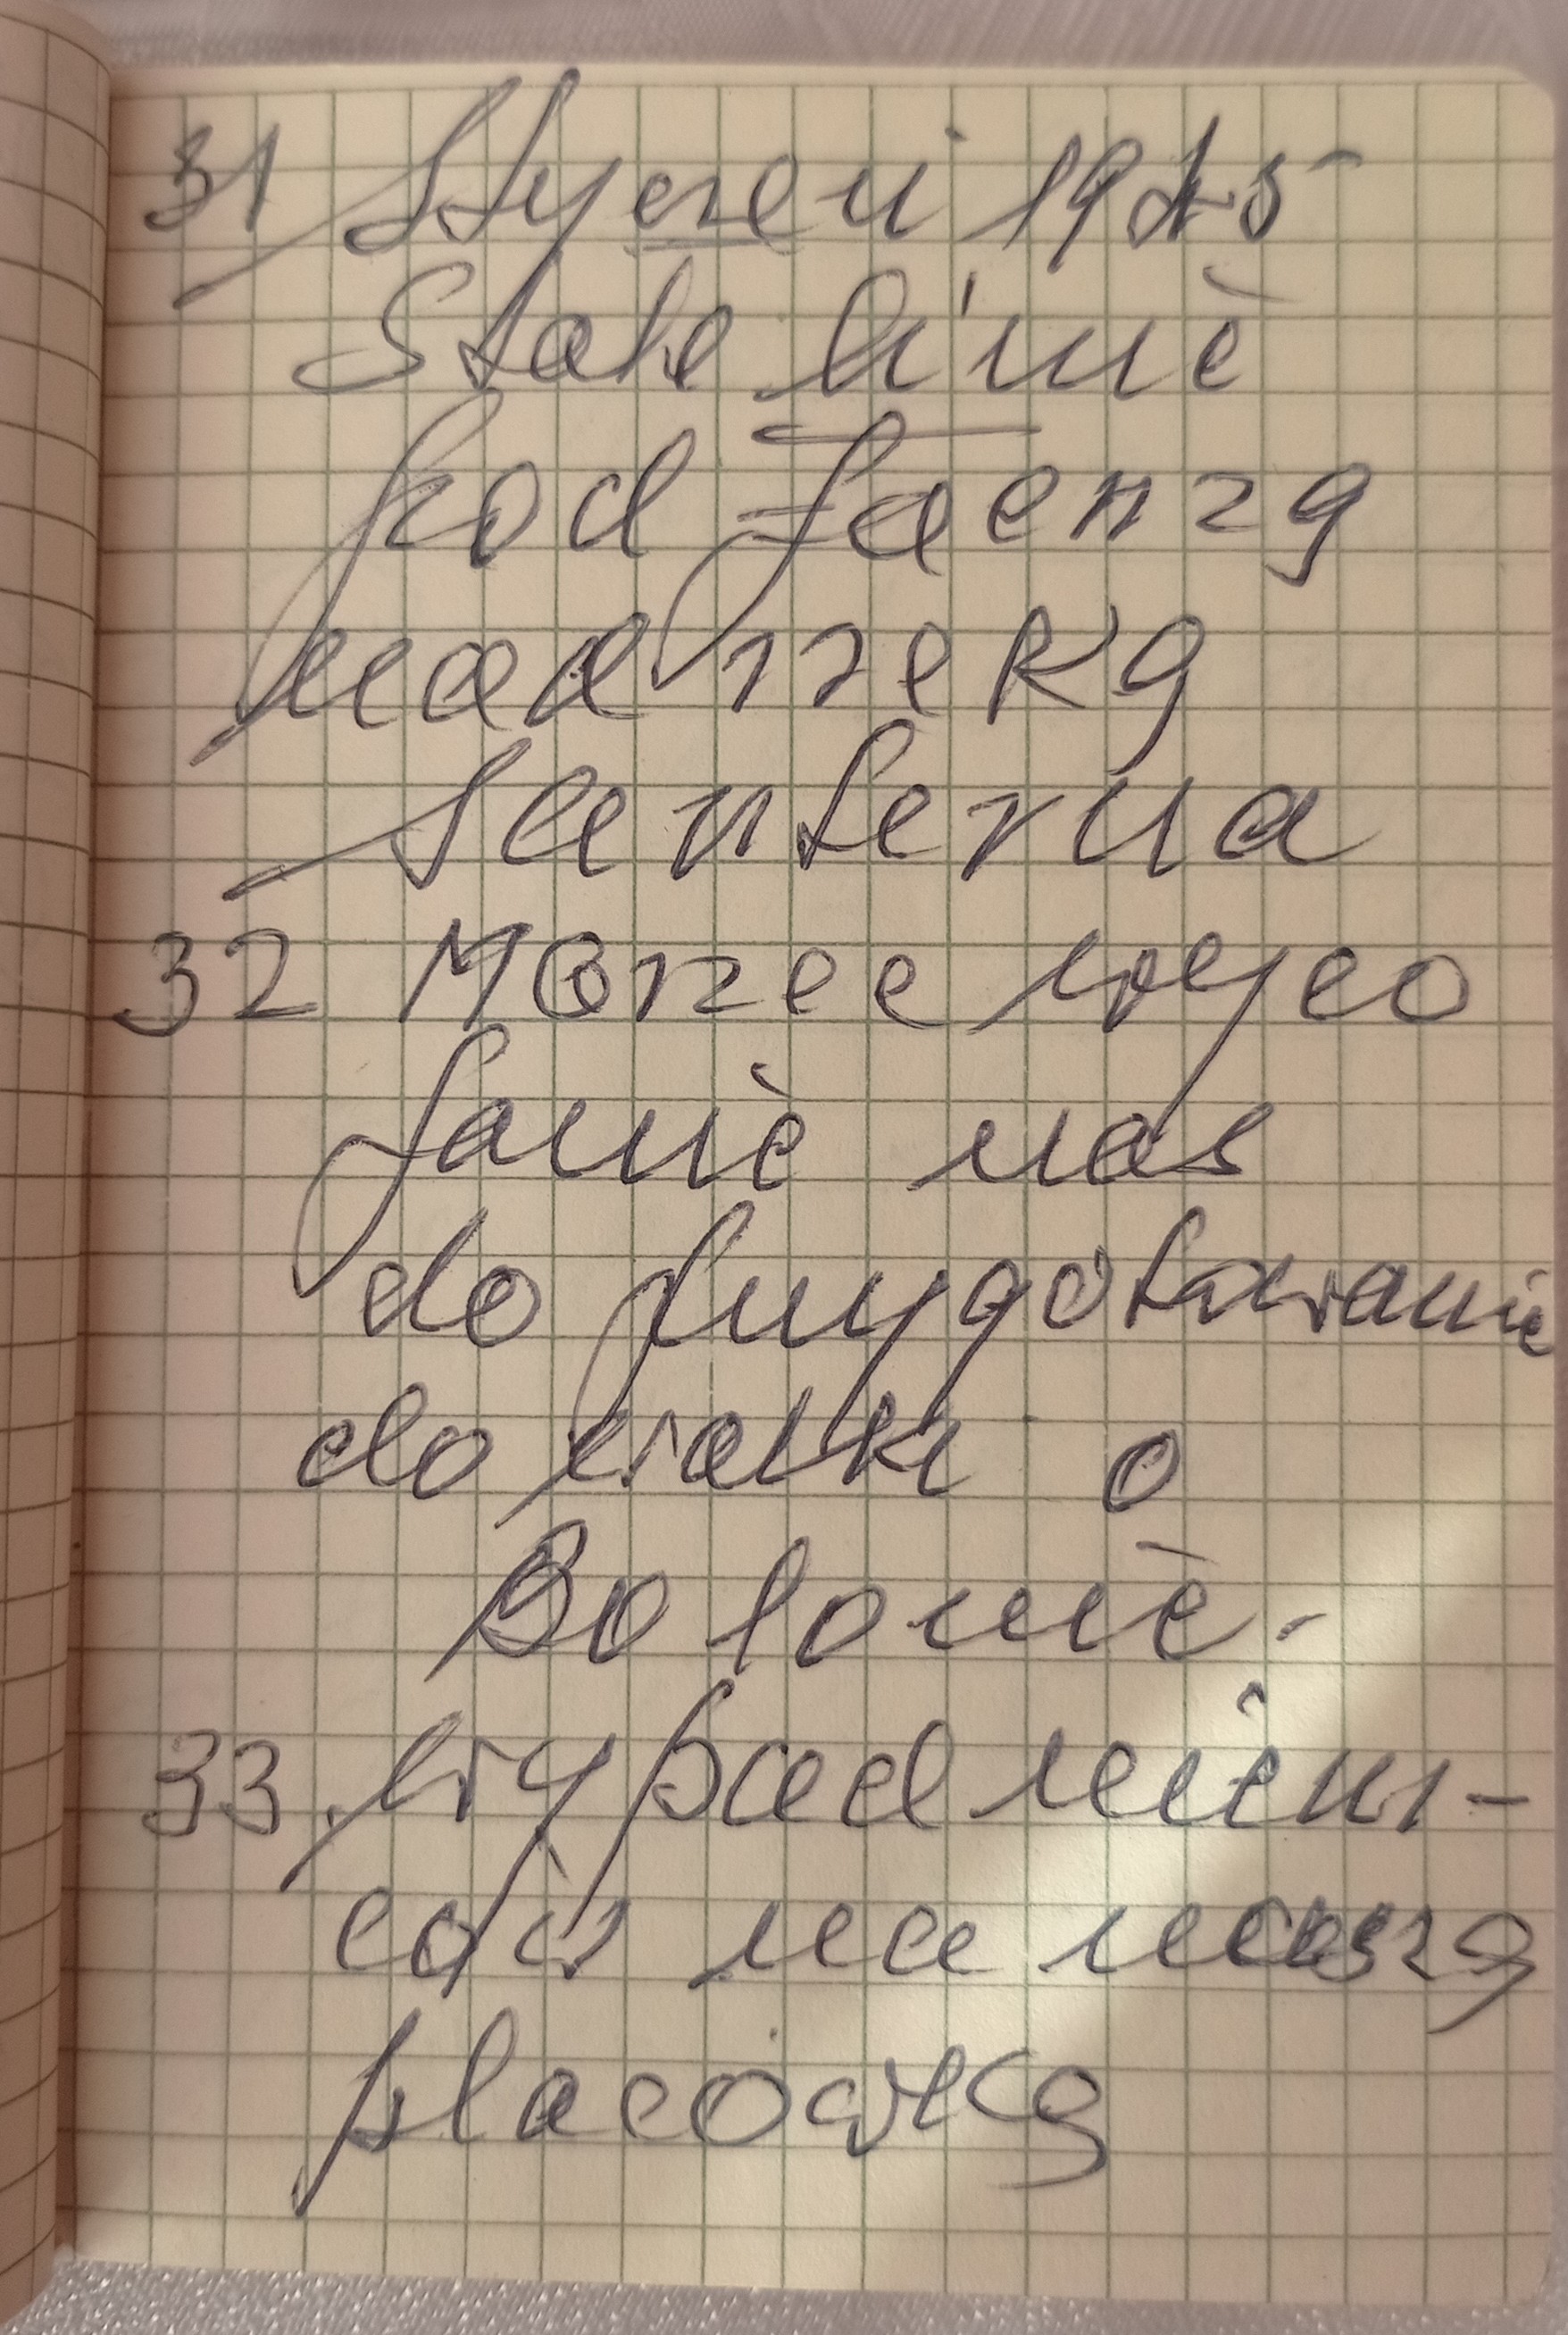 31 Styczeń 1945
Stałe linie
pod Faenzą
nad rzeką
Santerna
32 Marzec wyco
fanie nas
do przygotowania
do walki o
Bolonie.
33. Wypad niem-
ców na naszą
placówkę